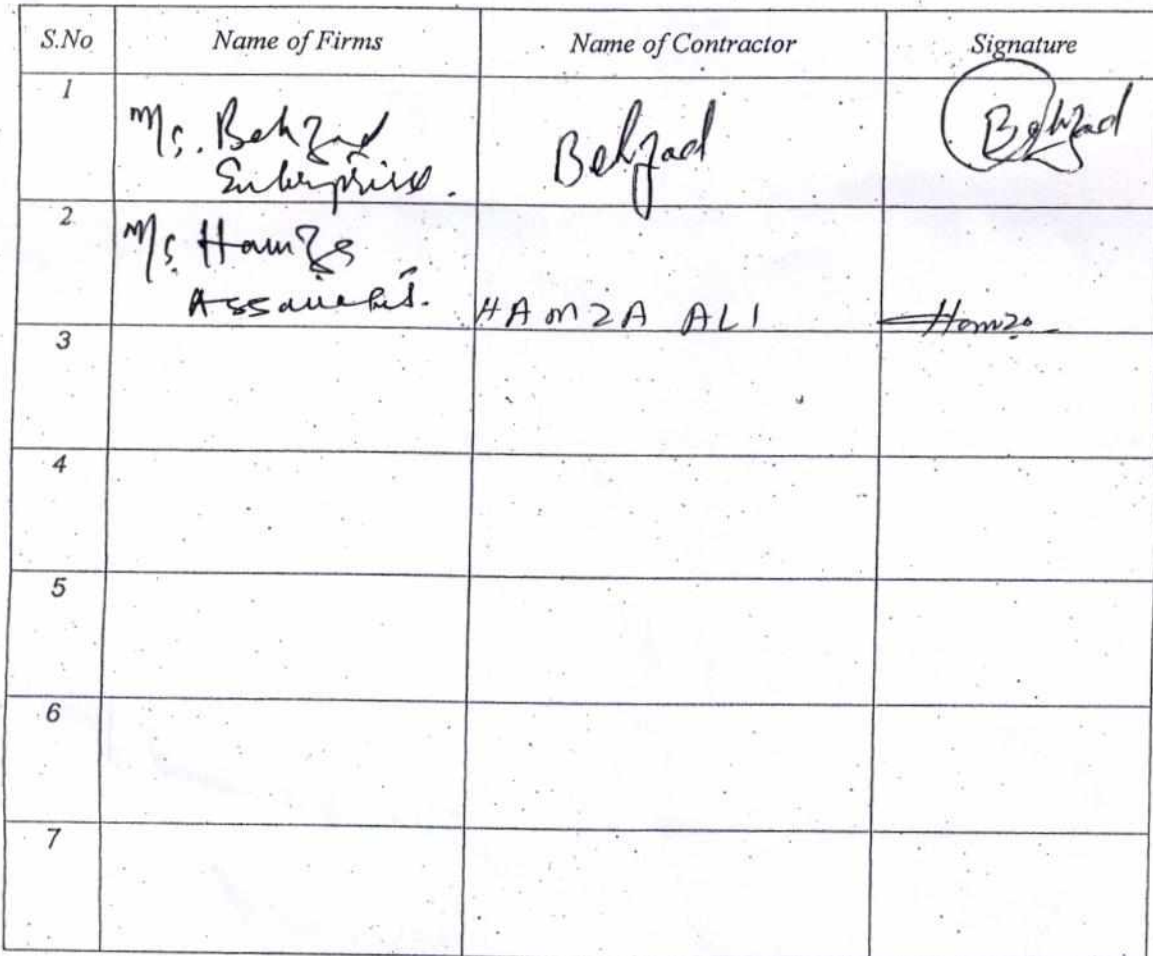 S.No Name of Firms Name of Contractor Signature
1
M/s. Behzad Behzad Behzad
Enterprise.
2
M/s. Hamza
Associates. HAMZA ALI Hamza
3
4
5
6
7